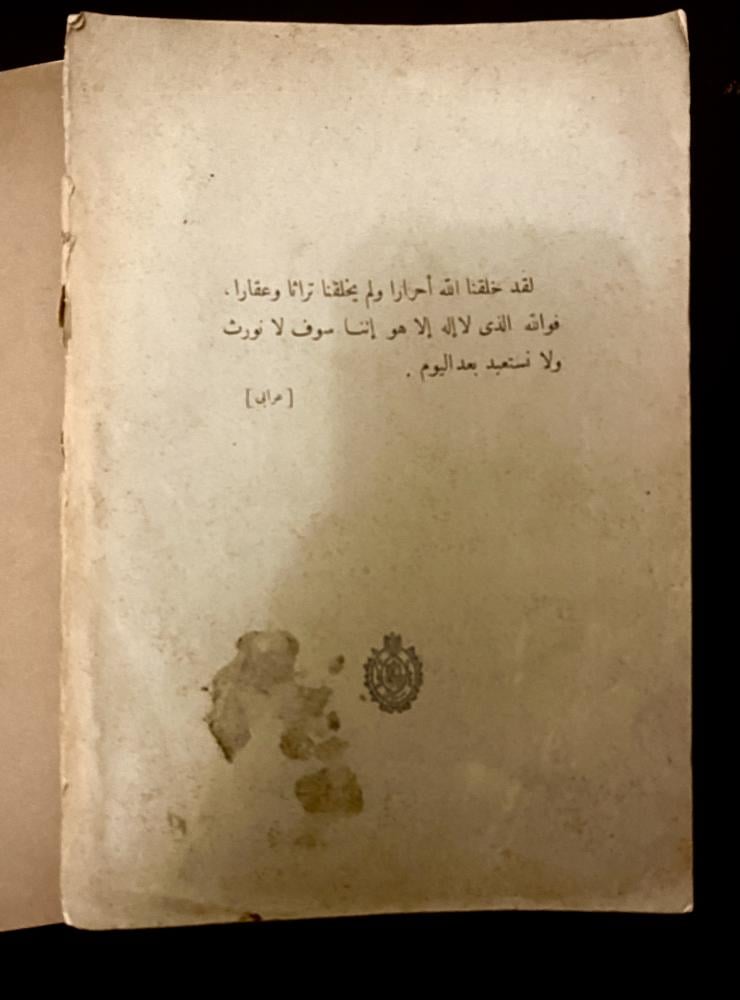 لقد خلقنا الله أحرارا ولم يخلقنا تراثا وعقارا ،
فوالله الذى لا إله إلا هو إننا سوف لا نورث
ولا نستعبد بعد اليوم .
[عرابى]